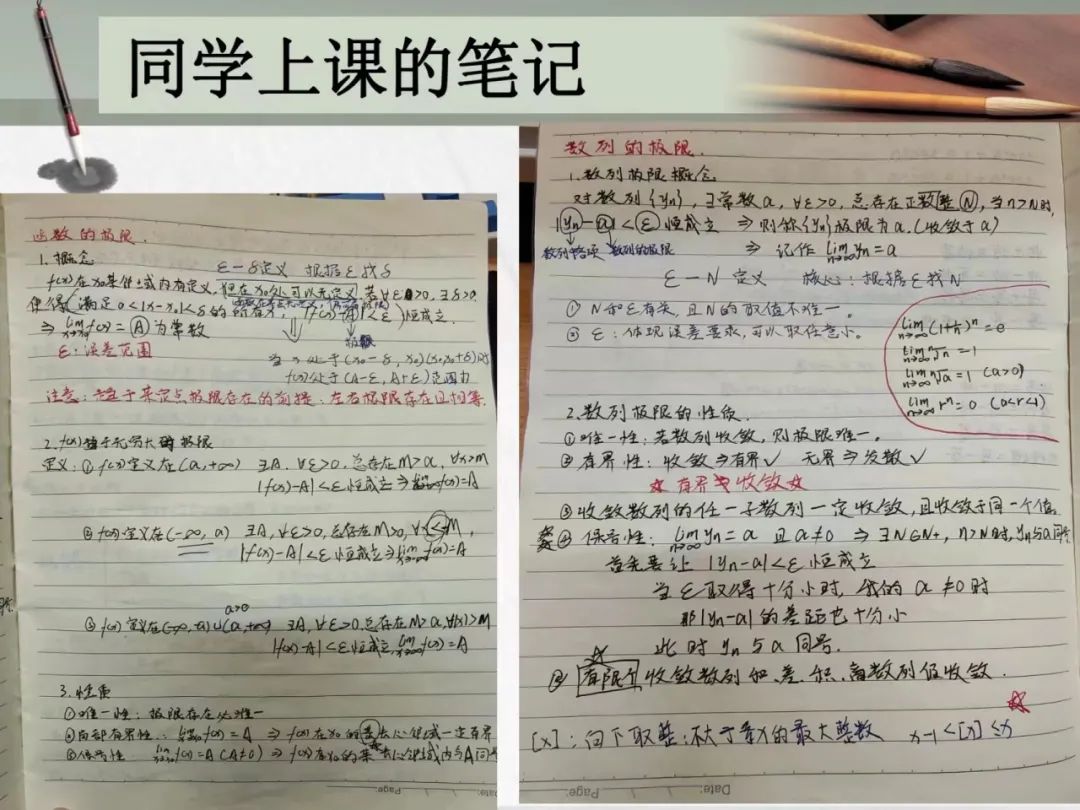 同学上课的笔记
函数的极限.
1. 概念
ε-δ定义 根据ε找δ
f(x)在x₀某邻域内有定义, 但在x₀处可以无定义, 若∀ε>0, ∃δ>0,
使得(满足0<|x-x₀|<δ的所有x, |f(x)-A|<ε)恒成立.
⇒ lim f(x)=A为常数
极限
ε:误差范围
当x处于(x₀-δ, x₀)(x₀,x₀+δ)时
f(x)处于(A-ε, A+ε)范围内
注意: 趋于某定点极限存在的前提:左右极限存在且相等.
2. f(x)趋于无穷大的极限
定义:① f(x)定义在(a,+∞) ∃A, ∀ε>0, 总存在M>a, ∀x>M
|f(x)-A|<ε恒成立⇒lim f(x)=A
② f(x)定义在(-∞, a) ∃A, ∀ε>0, 总存在M>0, ∀x<-M,
|f(x)-A|<ε恒成立⇒lim f(x)=A
a>0
③ f(x)定义在(-∞,-a)∪(a,+∞) ∃A, ∀ε>0,总存在M>a,∀|x|>M
|f(x)-A|<ε恒成立, lim f(x)=A
3. 性质
①唯一性: 极限存在必唯一
②局部有界性: lim f(x)=A ⇒ f(x)在x₀的某去心邻域一定有界
③保号性: lim f(x)=A(A≠0) ⇒ f(x)在x₀的某去心邻域内与A同号
数列的极限.
1. 数列极限概念
对数列{yn}, ∃常数a, ∀ε>0, 总存在正整数N, 当n>N时,
|yn-a|<ε恒成立 ⇒ 则称{yn}极限为a.(收敛于a)
数列的极限 ⇒ 记作 lim n→∞ yn=a
ε-N 定义 核心:根据ε找N
① N和ε有关, 且N的取值不唯一.
② ε:体现误差要求,可以取任意小。
lim n→∞ (1+1/n)ⁿ=e
lim n→∞ ⁿ√n=1
lim n→∞ ⁿ√a=1 (a>0)
lim n→∞ rⁿ=0
2. 数列极限的性质.
①唯一性:若数列收敛,则极限唯一。
②有界性:收敛⇒有界✓ 无界⇒发散✓
☆有界⇏收敛☆
③收敛数列的任一子数列一定收敛,且收敛于同一个值.
④ 保号性: lim n→∞ yn=a 且a≠0 ⇒ ∃N∈N+, n>N时, yn与a同号
首先要让 |yn-a|<ε恒成立
当ε取得十分小时, 我的 a≠0时
那|yn-a|的差距也十分小
此时yn与a同号.
有限个收敛数列和、差、积、商数列仍收敛.
[x]:向下取整:不大于x的最大整数 x-1<[x]≤x
Page:
Date:
Page: